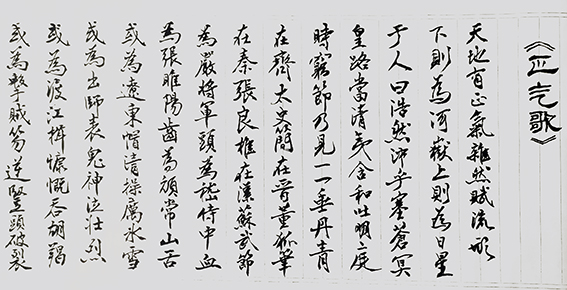 《正气歌》
天地有正氣雜然賦流形
下則為河嶽上則為日星
于人曰浩然沛乎塞蒼冥
皇路當清夷含和吐明庭
時窮節乃見一一垂丹青
在齊太史簡在晉董狐筆
在秦張良椎在漢蘇武節
為嚴將軍頭為嵇侍中血
為張睢陽齒為顏常山舌
或為遼東帽清操厲冰雪
或為出師表鬼神泣壯烈
或為渡江楫慷慨吞胡羯
或為擊賊笏逆豎頭破裂